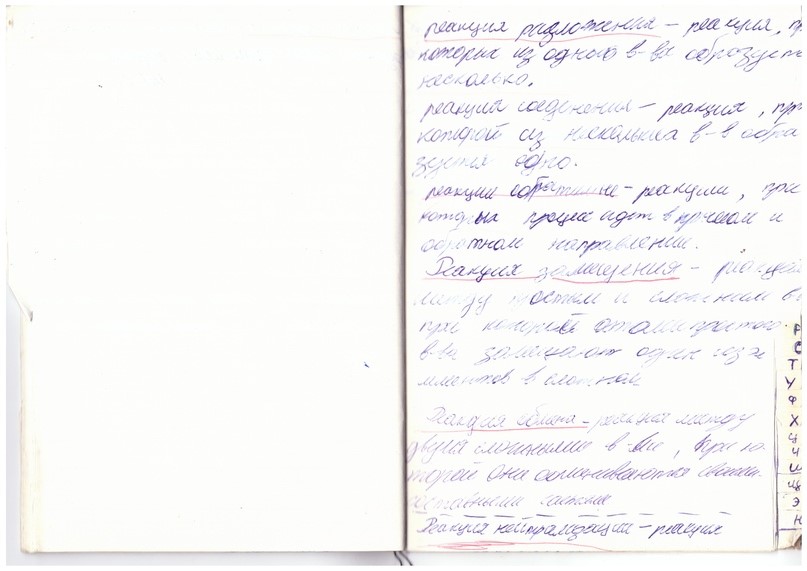 реакция разложения – реакция, пр
которых из одного в-ва образует
несколько.
реакция соединения – реакция, при
которой из нескольких в-в обра
зуется одно.
реакции обратимые – реакции, при
которых процес идет в прямом и
обратном направлении.
Реакция замещения – реакция
между простым и сложным в
при которой атомы простого
в-ва замещают один из э
лементов в сложном
Реакция обмена – реакция между
двумя сложными в-ми, при ко
торой они обмениваются своими
составными частями
Реакция нейтрализации – реакция
Р
С
Т
У
Ф
Х
Ц
Ч
Ш
Щ
Э